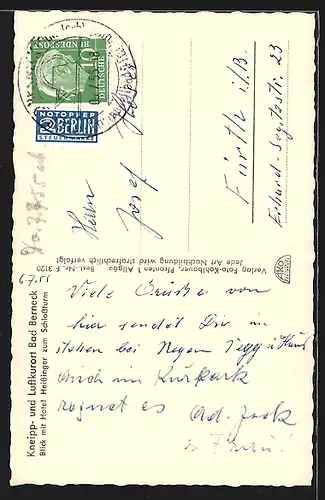 DEUTSCHE
BUNDESPOST
10
NOTOPFER
2 BERLIN
STEUERMARKE
Herrn
Josef
Fürth i/B.
Erhard-Segitzstr. 23
Verlag Foto-Kohlbauer Pfronten i. Allgäu Best.-Nr. F 3120
Jede Art Nachbildung wird strafrechtlich verfolgt
AKO
Kneipp- und Luftkurort Bad Berneck
Blick mit Hotel Heißinger zum Schloßturm
6.7.55
Viele Grüße von
hier sendet Dir im
stehen bei Regen
auch im Kurpark
regnet es
u Frau!